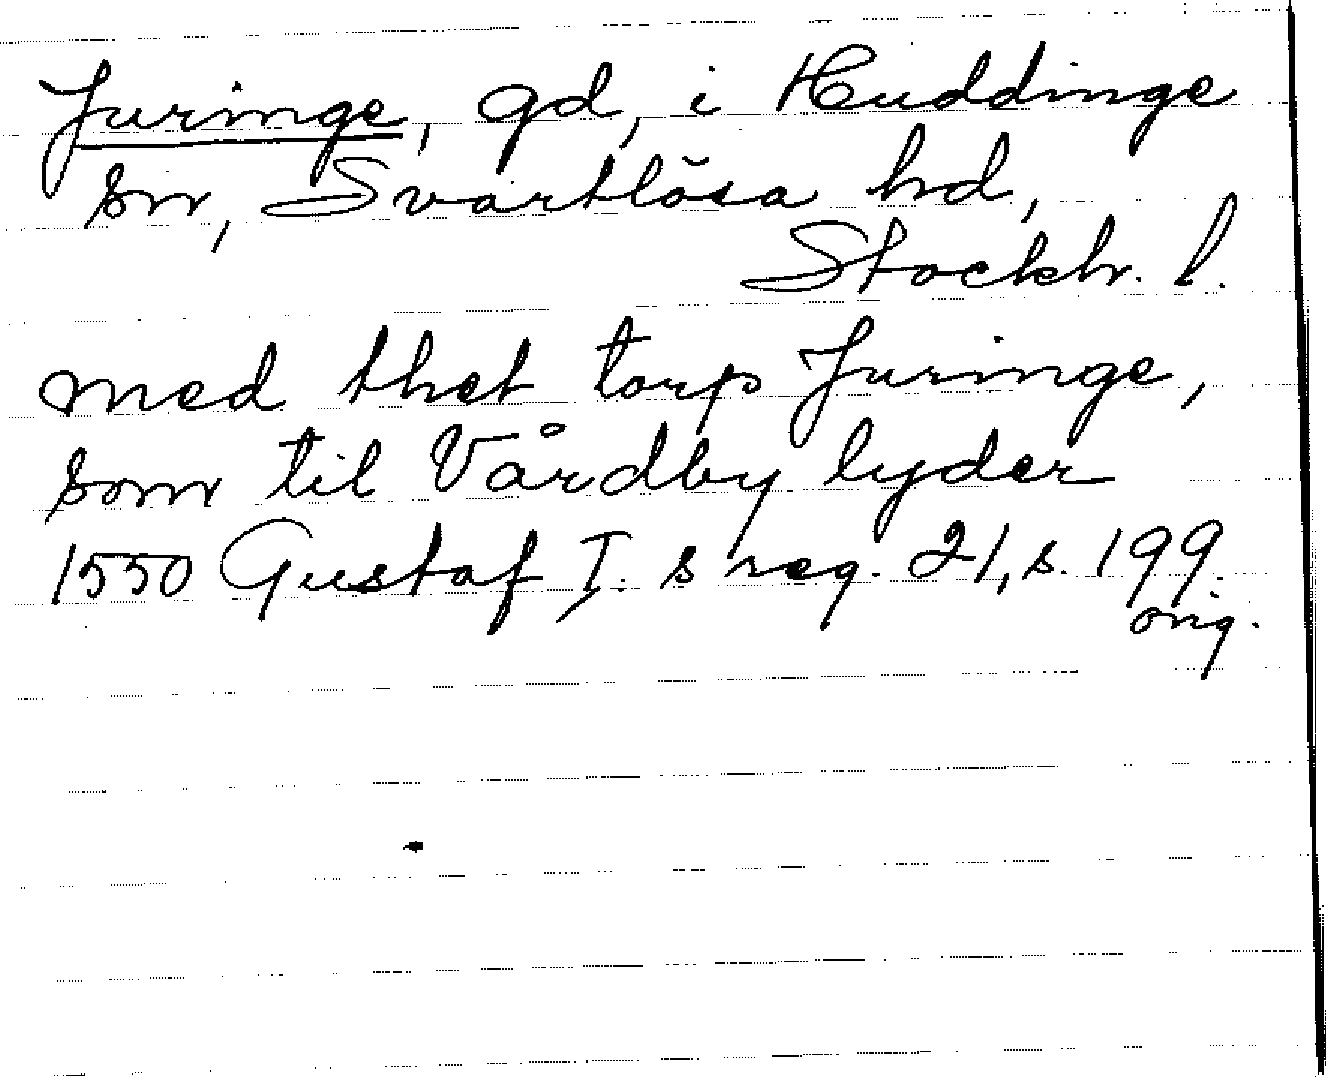 Juringe, gd, i Huddinge
sn, Svartlösa hd,
Stockh. l.
med thet torp Juringe,
som til Vårdby lyder
1550 Gustaf I. s reg. 21, s. 199.
orig.